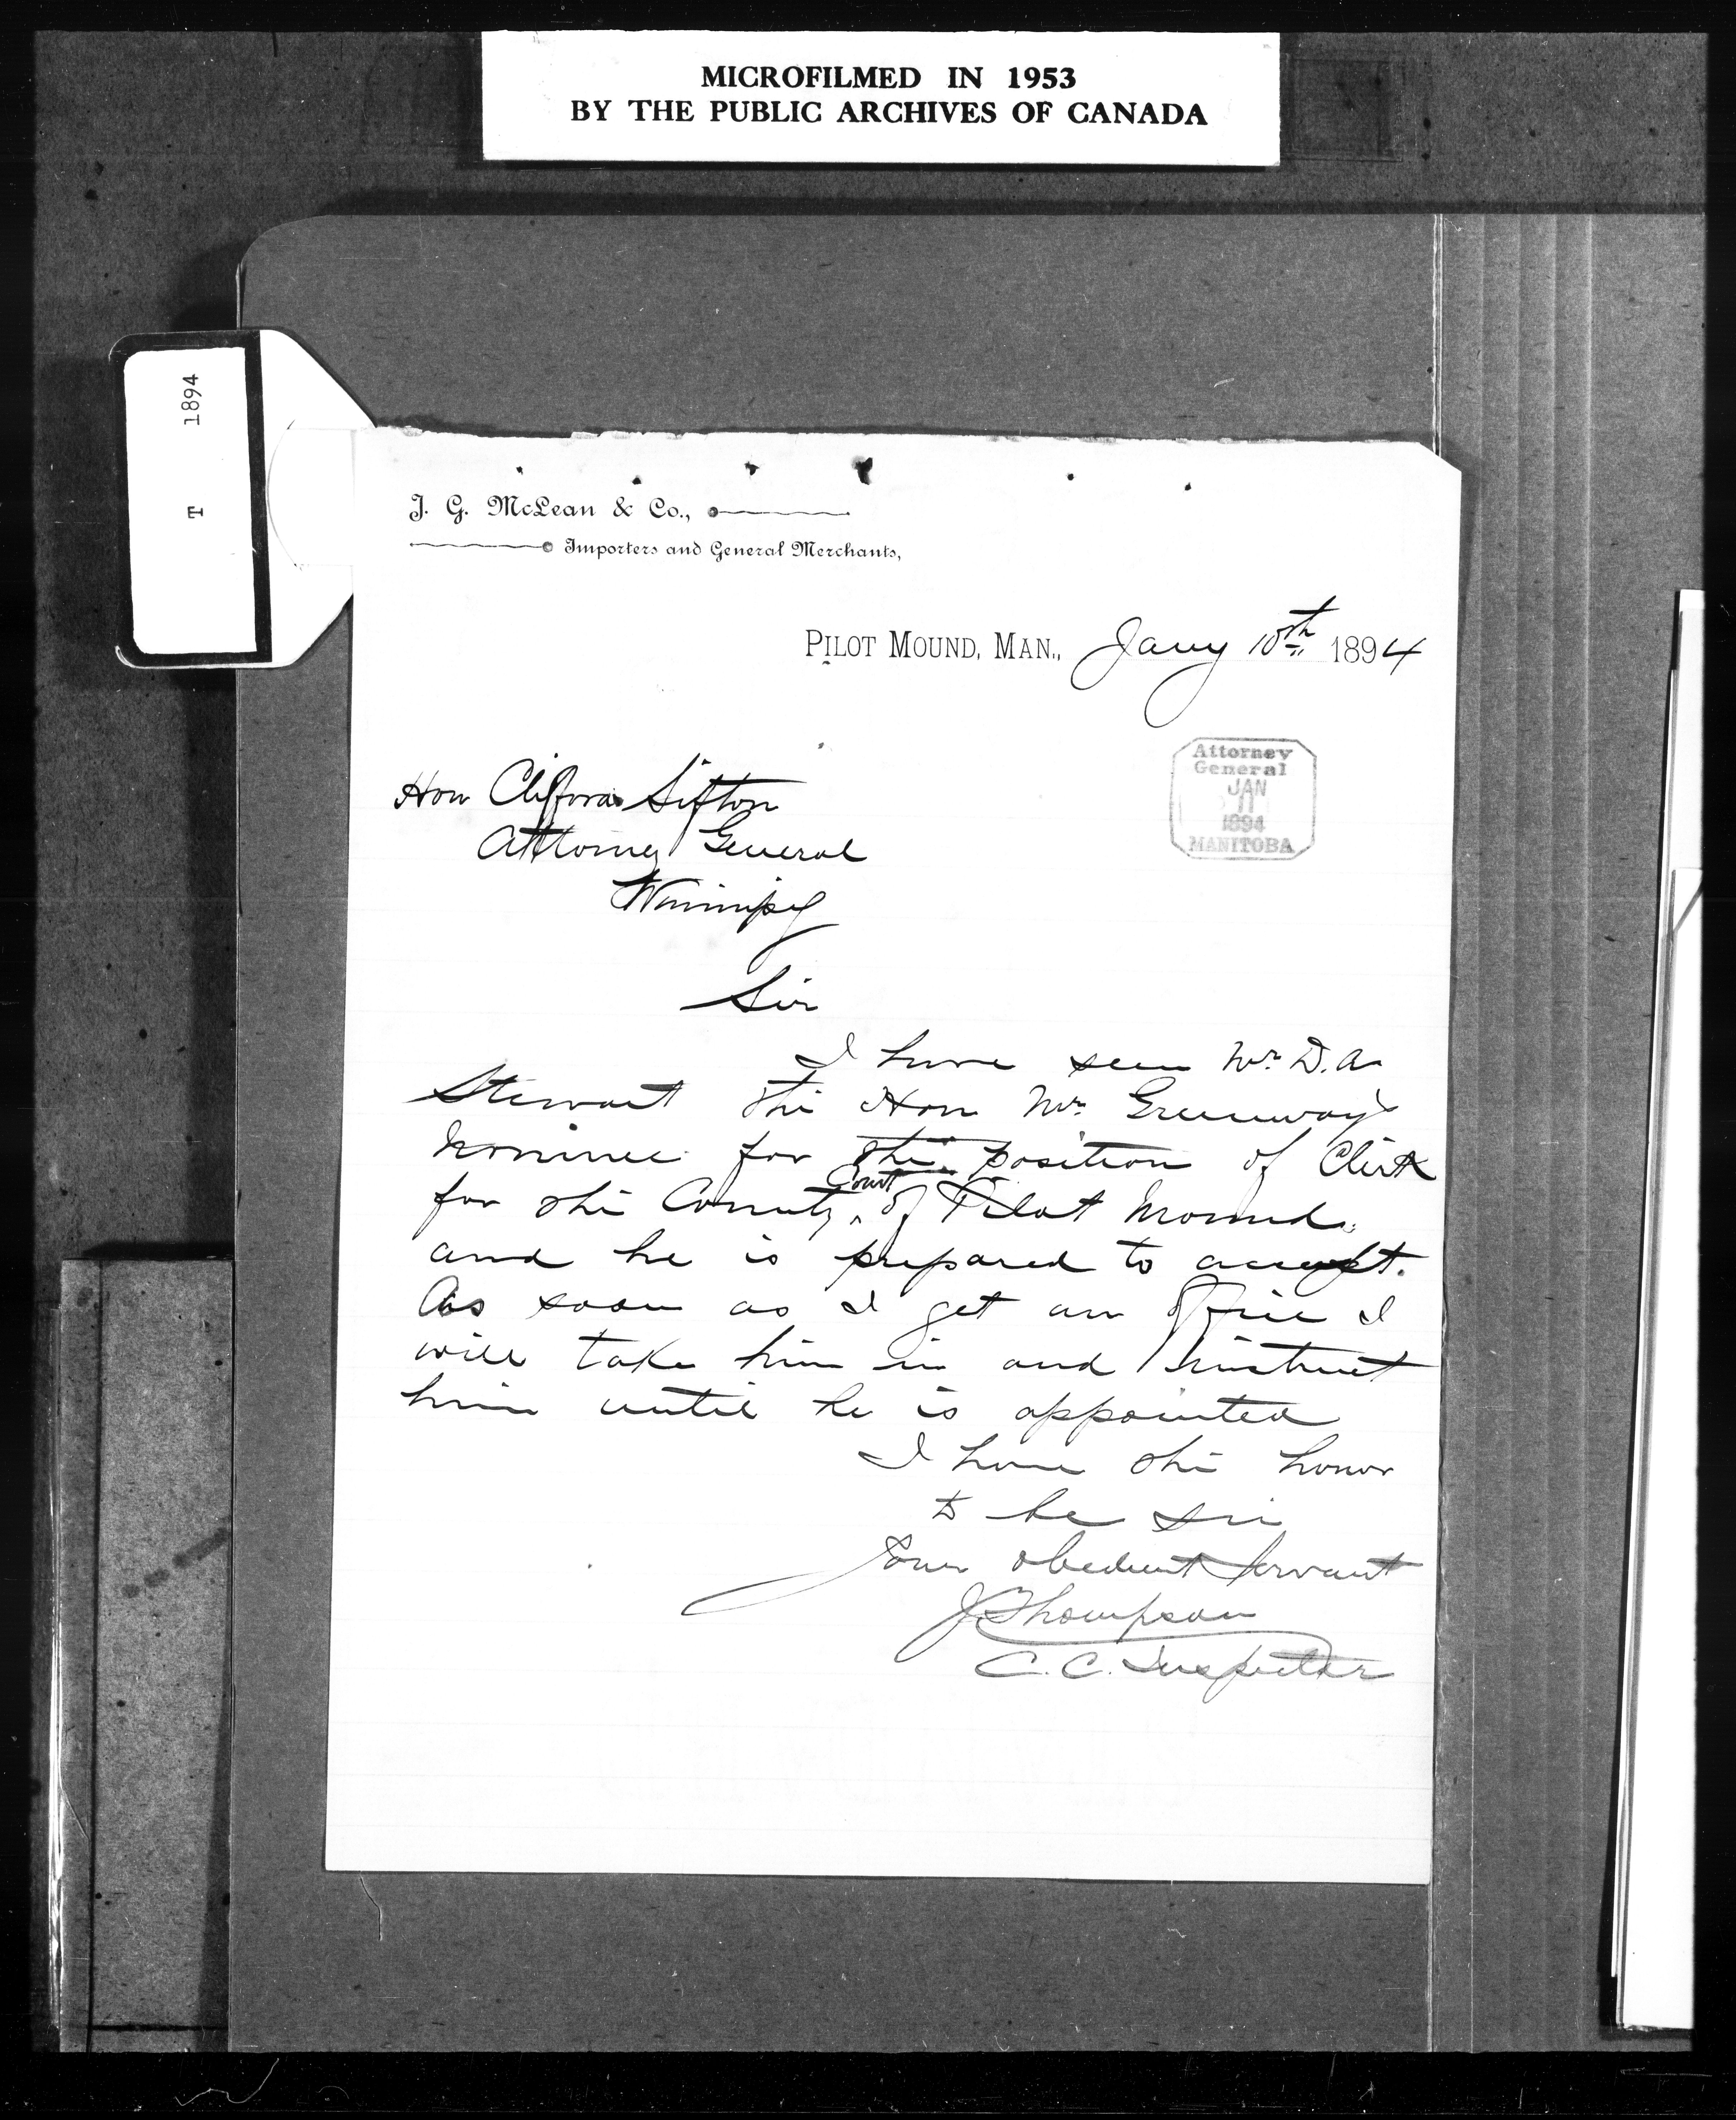 MICROFILMED IN 1953
BY THE PUBLIC ARCHIVES OF CANADA
T 1894
J. G. McLean & Co.,
Importers and General Merchants,
PILOT MOUND, MAN., Jany 10th 1894
Attorney
General
JAN
11
1894
MANITOBA
Hon Clifford Sifton
Attorney General
Winnipeg
Sir
I have seen Mr. D. A.
Stewart the Hon Mr. Greenway's
nominee for the position of Clerk
for the County Court of Pilot Mound.
and he is prepared to accept.
As soon as I get an office I
will take him in and instruct
him until he is appointed
I have the honor
to be Sir
Your obedient Servant
J Thompson
C. C. Inspector